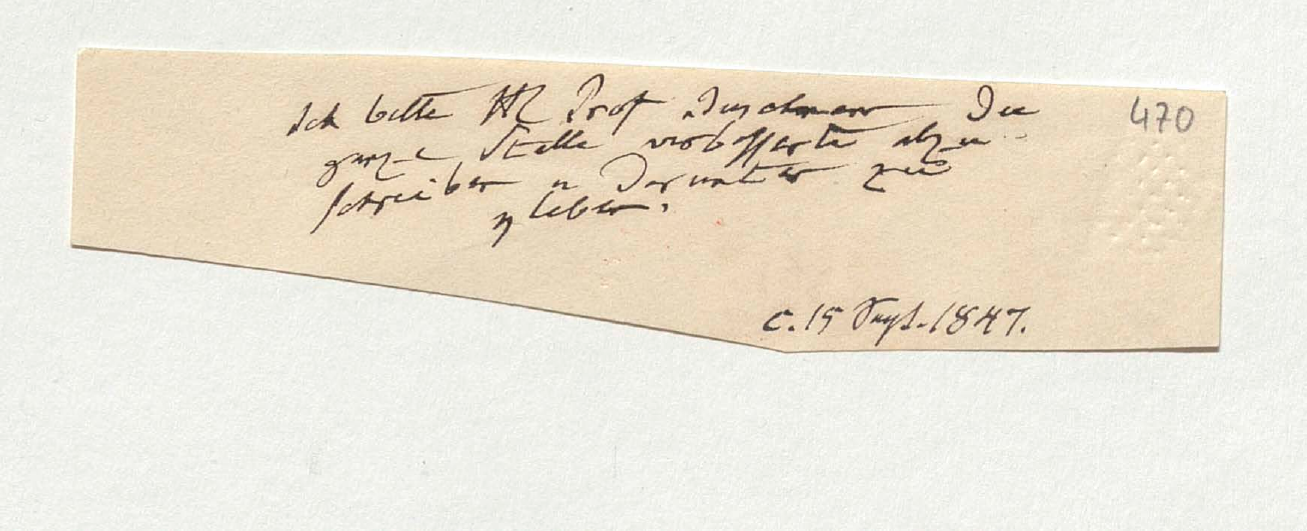 Ich bitte H Prof Buschmann die
470
ganze Stelle verbesserte abzu
schreiben u darunter zu
kleben.
c. 15 Sept. 1847.